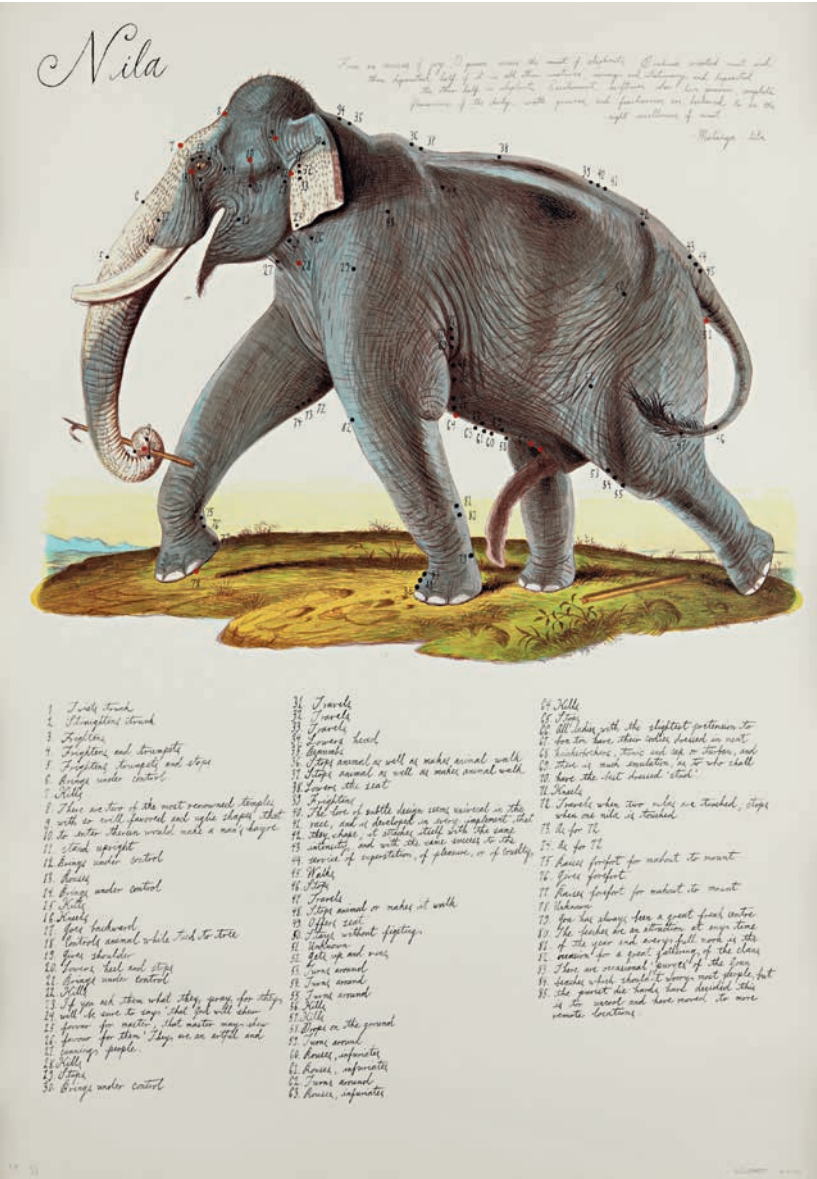 Nila
of joy, I
of elephants
half of it in all
and deposited
the other half in elephants
of the body
right excellence of
Matanga Lila
1 Twists trunk
2. Straightens trunk
3. Frightens
4. Frightens and trumpets
5. Frightens trumpets and stops
6. Brings under control
7. Kills
8. There are two of the most renowned temples
9. with so evill favored and uglie shapes that
10. to enter therein would make a man's hayre
11. stand upright
12. Brings under control
13. Rouses
14. Brings under control
15. Kills
16. Kneels
17. Goes backward
18. Controls animal while tied to tree
19. Gives shoulder
20. Lowers heel and stops
21. Brings under control
22. Kills
23. If you ask them what they pray for they
24. will be sure to say 'that God will shew
25. favour for master, that master may shew
26. favour for them' They are an artful and
27. cunning people.
28. Kills
29. Stops
30. Brings under control
31. Travels
32. Travels
33. Travels
34. Lowers head
35. Benumbs
36. Stops animal as well as makes animal walk
37. Stops animal as well as makes animal walk
38. Lowers the seat
39. Frightens
40. The love of subtle design seems universal in the
41. race, and is developed in every implement that
42. they shape, it attaches itself with the same
43. intensity, and with the same success to the
44. service of superstition, of pleasure, or of cruelty.
45. Walks
46. Stops
47. Travels
48. Stops animal or makes it walk
49. Offers seat
50. Stays without fighting
51. Unknown
52. Gets up and runs
53. Turns around
54. Turns around
55. Turns around
56. Kills
57. Kills
58. Drops on the ground
59. Turns around
60. Rouses, infuriates
61. Rouses, infuriates
62. Turns around
63. Rouses, infuriates
64. Kills
65. Stops
66. All ladies with the slightest pretension to
67. bon ton have their ladies dressed in neat
68. knickerbockers, tunic and cap or turban, and
69. there is much emulation, as to who shall
70. have the best dressed 'stud'
71. Kneels
72. Travels when two nilas are touched, stops
when one nila is touched
73. As for 72
74. As for 72
75. Raises forefoot for mahout to mount
76. Gives forefoot
77. Raises forefoot for mahout to mount
78. Unknown
79. Goa has always been a great freak centre
80. The beaches are an attraction at anye time
81. of the year and every full moon is the
82. occasion for a great gathering of the clans
83. There are occasional 'purges' of the Goan
84. beaches which shouldn't worry most people, but
85. the purist die hards have decided this
is too uncool and have moved to more
remote locations.